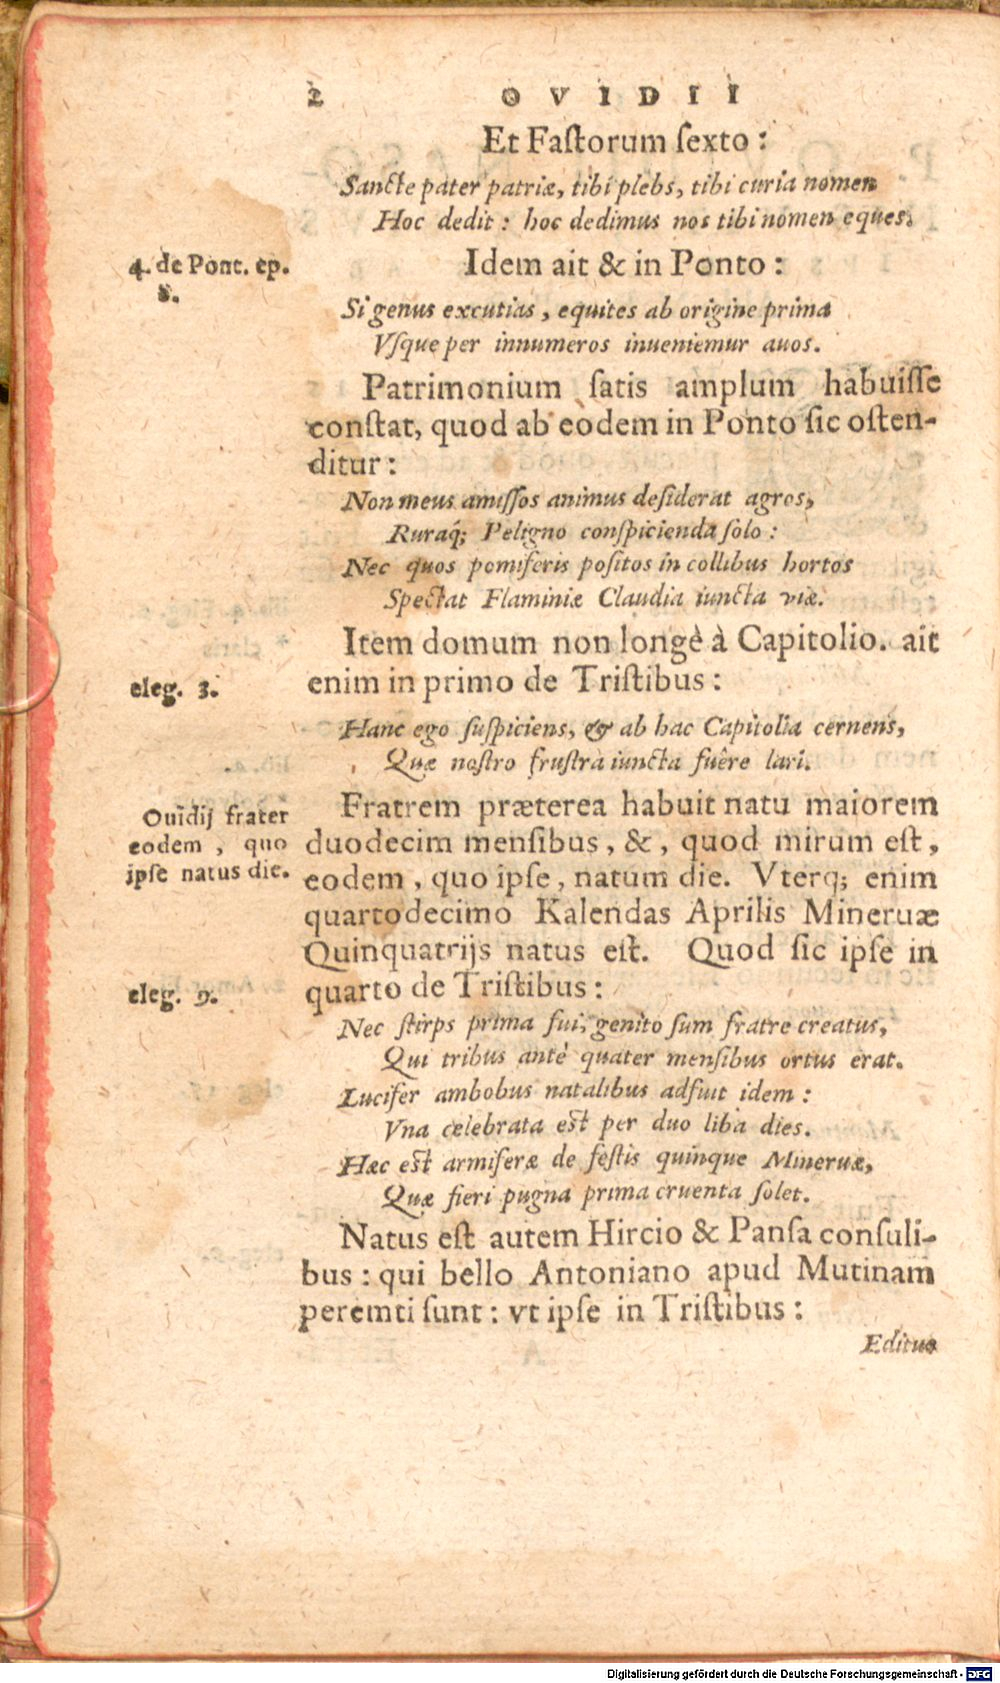 2 OVIDII
Et Fastorum sexto:
Sancte pater patriæ, tibi plebs, tibi curia nomen
Hoc dedit: hoc dedimus nos tibi nomen eques.
4. de Pont. ep.
8.
Idem ait & in Ponto:
Si genus excutias, equites ab origine prima
Vsque per innumeros inueniemur auos.
Patrimonium satis amplum habuisse
constat, quod ab eodem in Ponto sic osten-
ditur:
Non meus amissos animus desiderat agros,
Ruraq; Peligno conspicienda solo:
Nec quos pomiferis positos in collibus hortos
Spectat Flaminiæ Claudia iuncta viæ.
Item domum non longè à Capitolio. ait
enim in primo de Tristibus:
eleg. 3.
Hanc ego suspiciens, & ab hac Capitolia cernens,
Quæ nostro frustrà iuncta fuêre lari.
Ouidij frater
eodem, quo
ipse natus die.
Fratrem præterea habuit natu maiorem
duodecim mensibus, &, quod mirum est,
eodem, quo ipse, natum die. Vterq; enim
quartodecimo Kalendas Aprilis Mineruæ
Quinquatrijs natus est. Quod sic ipse in
quarto de Tristibus:
eleg. 9.
Nec stirps prima fui, genito sum fratre creatus,
Qui tribus antè quater mensibus ortus erat.
Lucifer ambobus natalibus adfuit idem:
Vna celebrata est per duo liba dies.
Hæc est armiferæ de festis quinque Mineruæ,
Quæ fieri pugna prima cruenta solet.
Natus est autem Hircio & Pansa consuli-
bus: qui bello Antoniano apud Mutinam
peremti sunt: vt ipse in Tristibus:
Editus
Digitalisierung gefördert durch die Deutsche Forschungsgemeinschaft - DFG